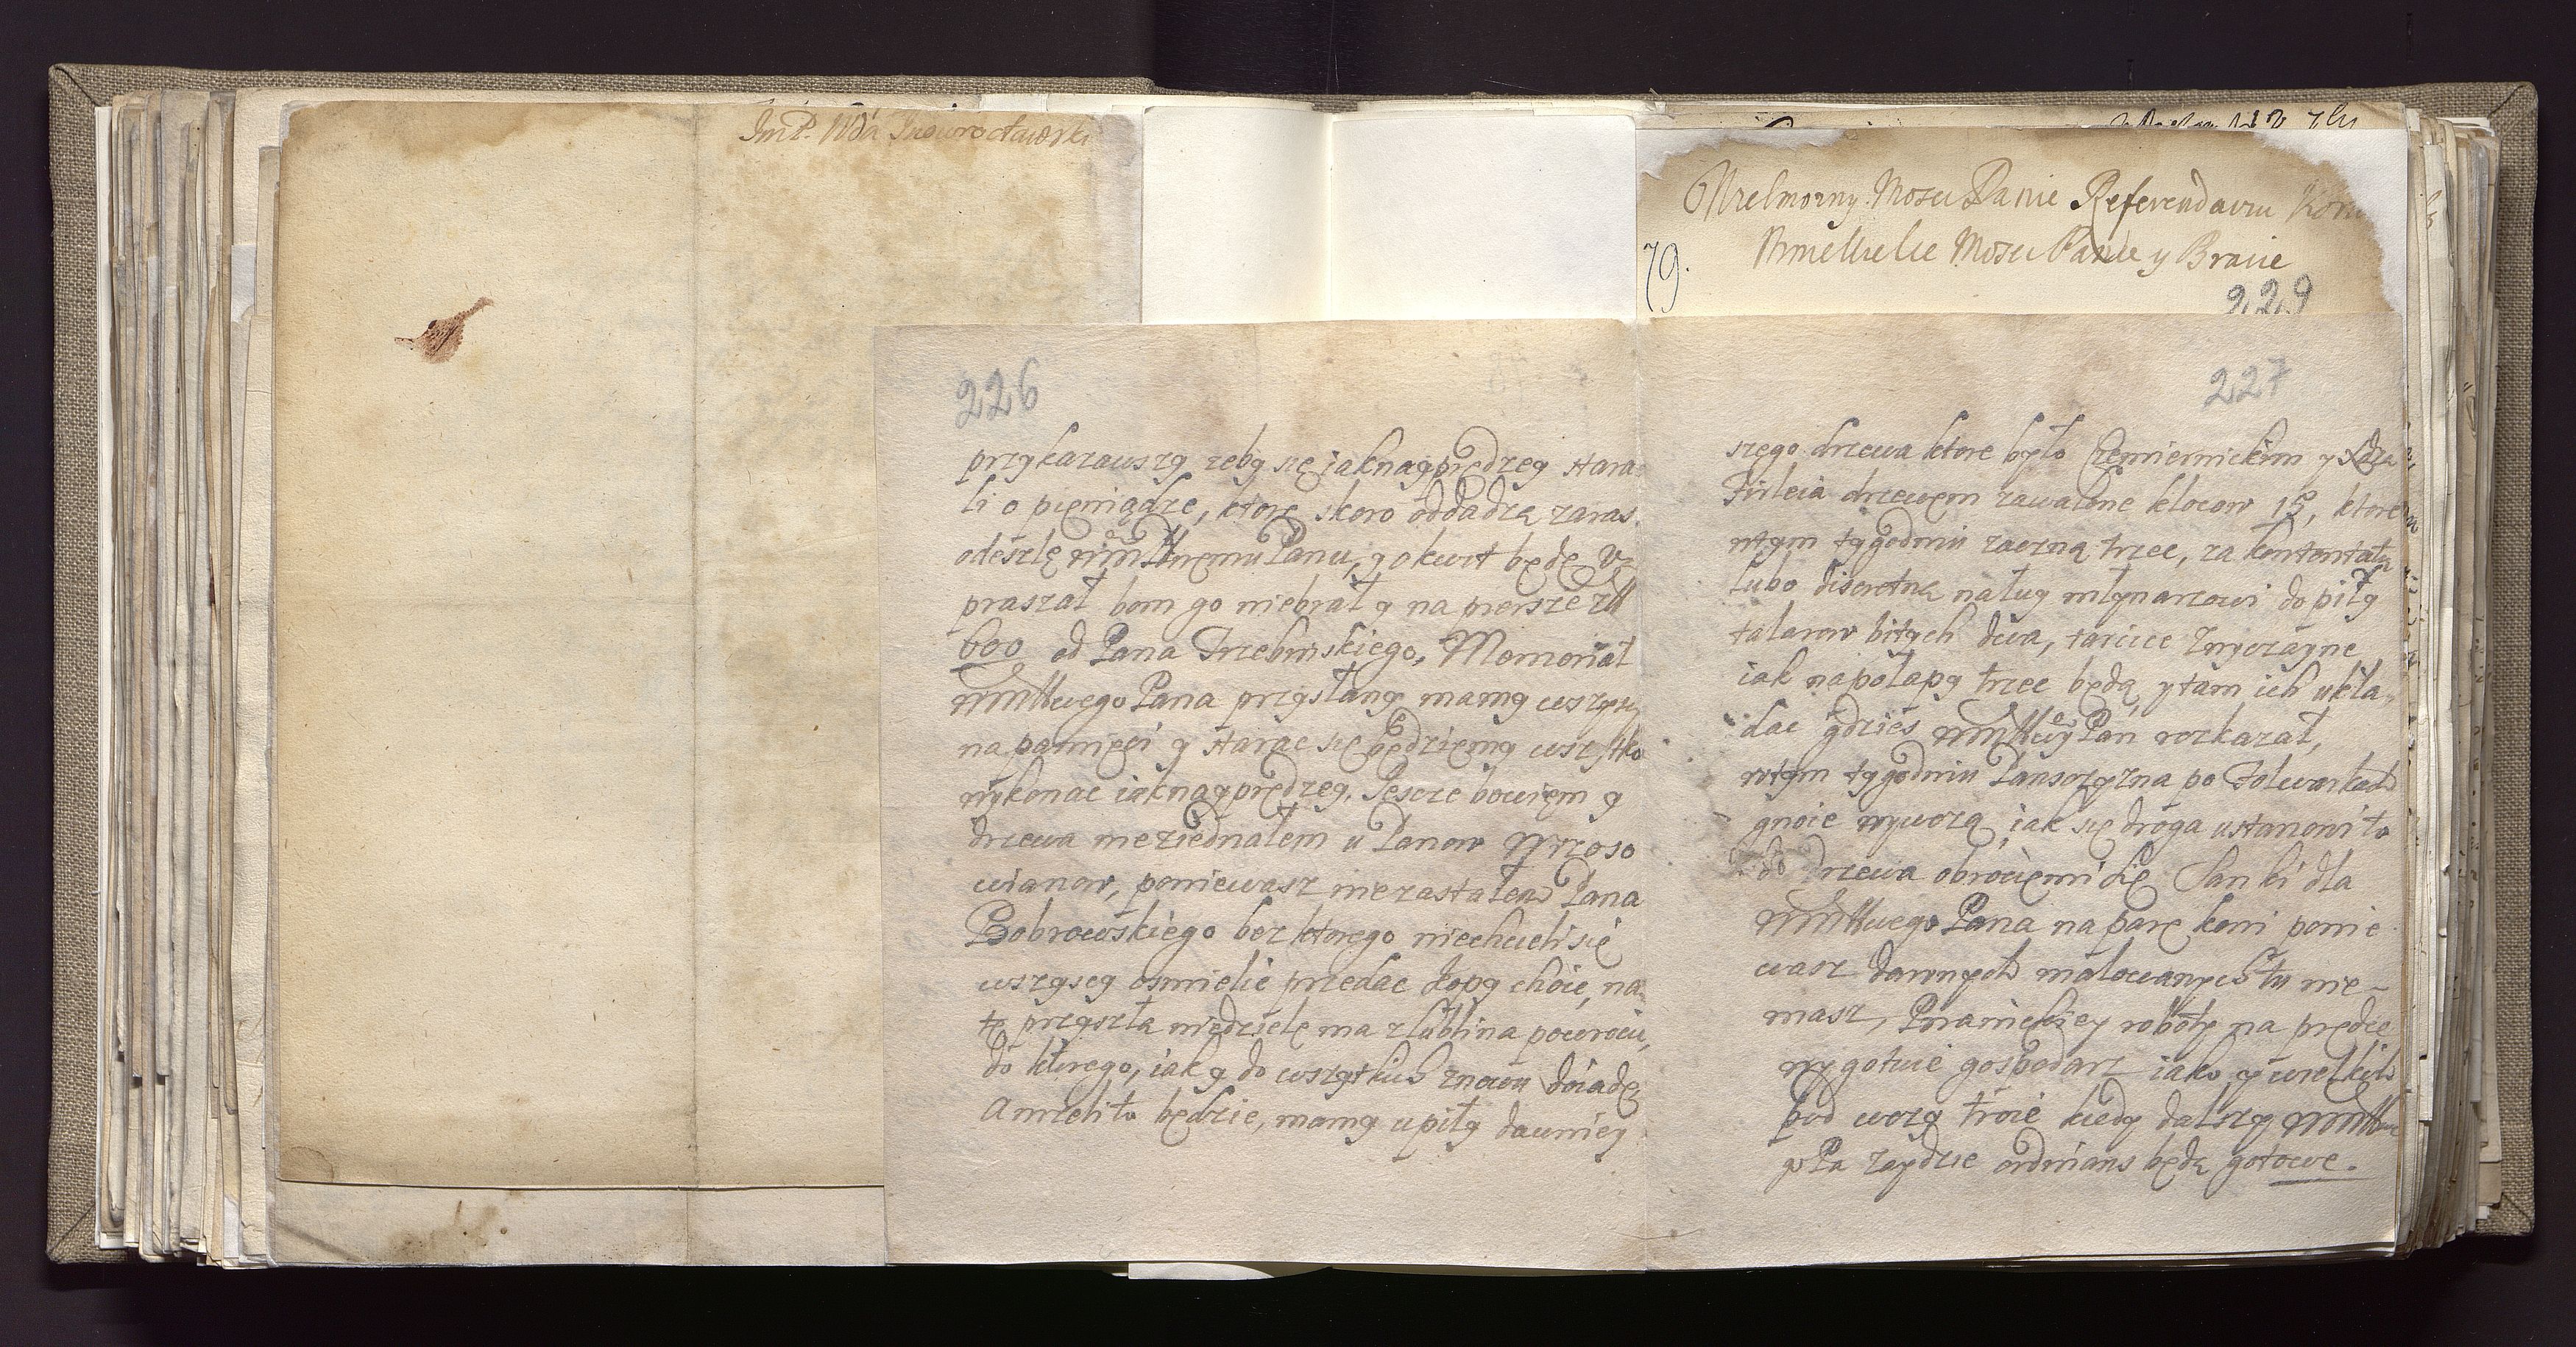 Im P. Wda Inowrocławski
Wielmozny Mosci Panie Referendarzu Koro
Mnie Wielce Mosci Panie y Bracie
79.
229
226
przykazawszy zeby się iaknayprędzey stara
li o pieniądze, ktore skoro oddadzą zaras
odeszlę Panu, y o kwit będę V
praszał bom go niebrał y na piersze zł
600 od Pana Trzebinskiego, Memoriał
Pana przysłany mamy wszyscy
napamięci y starac się będziemy wszystko
wykonac iaknayprędzey. Jescze bowiem y
drzewa nieziednałem u Panow Wrzoso
wianow, poniewasz niezastałem Pana
Bobrowskiego bez ktorego niechcieli się
wszyscy osmielic przedac kopy choie, na
tę przyszłą niedzielę ma z Lublina powrocic,
do ktorego, iak y do wszytkich znowu doiadę
Amieli to będzie, mamy u piły dawniey
227
szego drzewa ktore było Czemiernickim y
Firleia drzewem zawalone klocow 15, ktore
wtym tygodniu zaczną trzec, za kontentatą
lubo discretną natuy młynarzowi do piły
talarow bitych dwa, tarcice zwyczayne
iak napołapy trzec będą, y tam ich ukła
dac gdzies Pan rozkazał,
wtym tygodniu Pansczyzna po Folwarkach
gnoie wywozą, iak się droga ustanowi to
do drzewa obrociemi się Sanki dla
Pana na parę koni ponie
wasz dawnych malowanych tu nie-
masz, robotę na prędce
wygotuie gospodarz iako y wielkich
pod wozy troie kiedy dalszy
go Pa zaydzie ordinans będą gotowe.